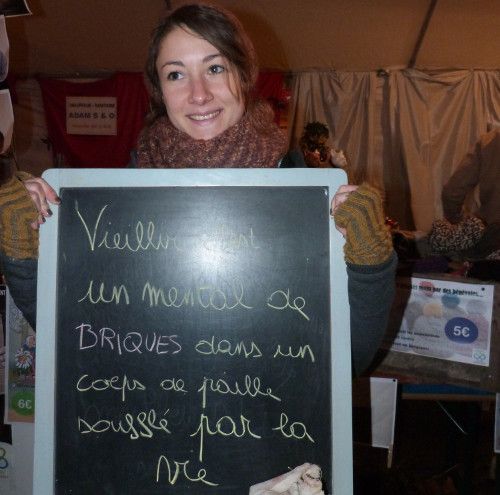 ADAM S & O
Vieillir c'est
un mental de
BRIQUES dans un
corps de paille
soufflé par la
vie
par des bénévoles...
5€
6€